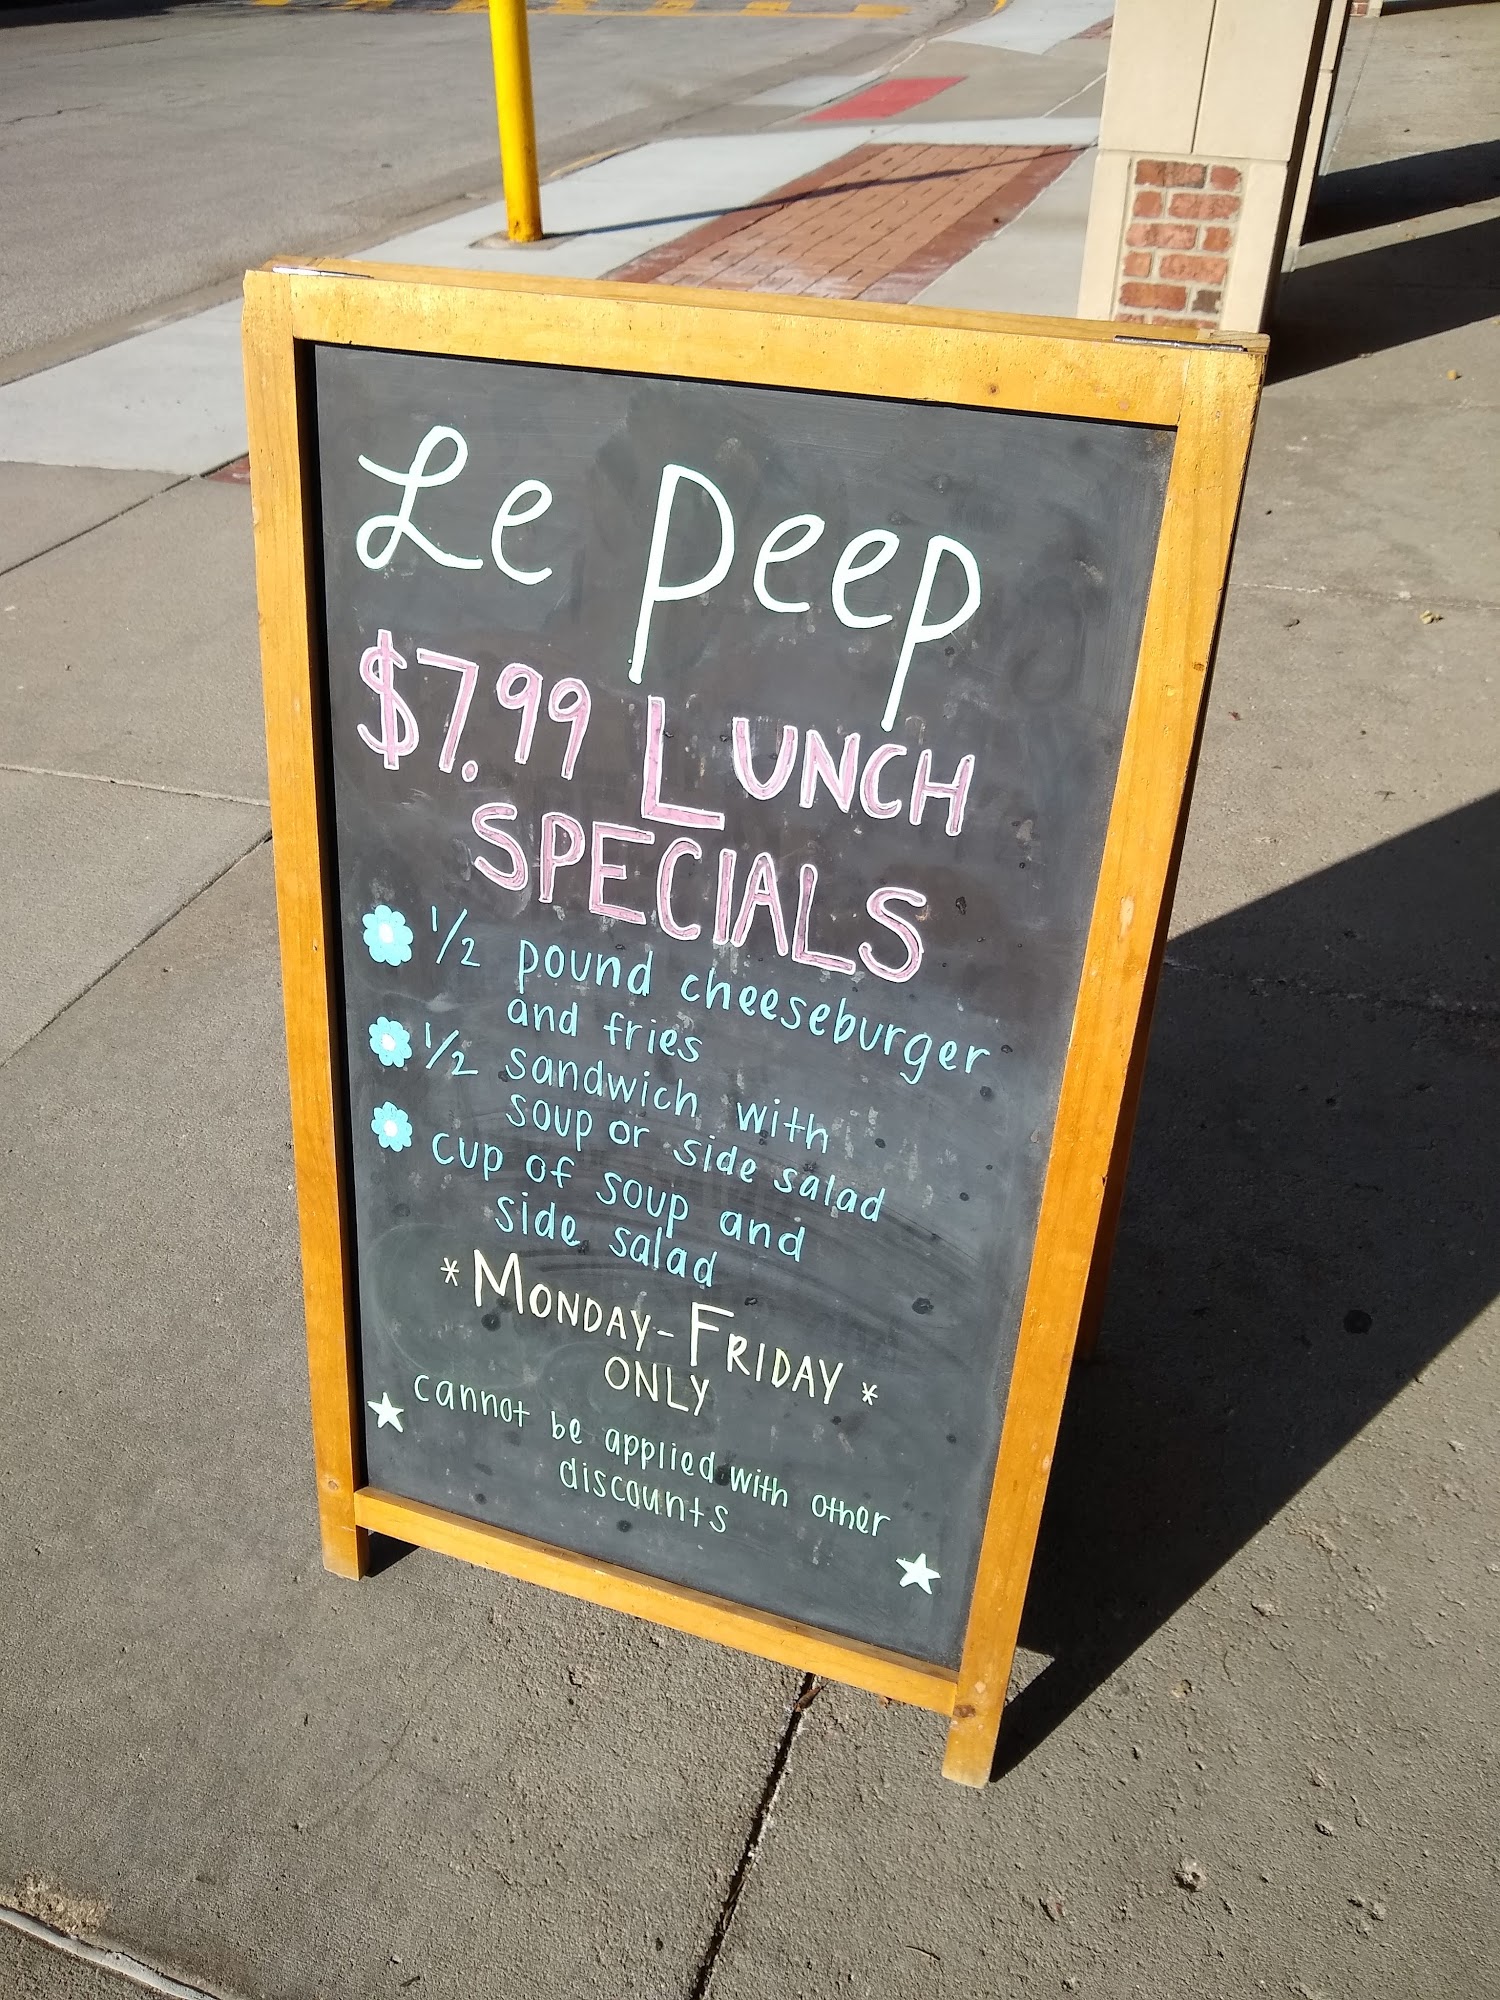 Le Peep
$7.99 LUNCH
SPECIALS
1/2 pound cheeseburger
and fries
1/2 sandwich with
soup or side salad
cup of soup and
side salad
* MONDAY-FRIDAY *
ONLY
cannot be applied with other
discounts